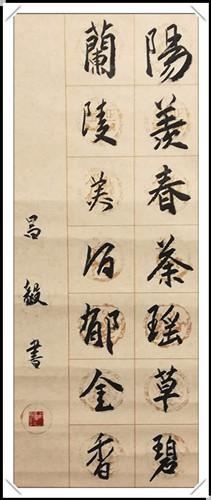 陽羨春茶瑶草碧
蘭陵美酒郁金香
昌毅書